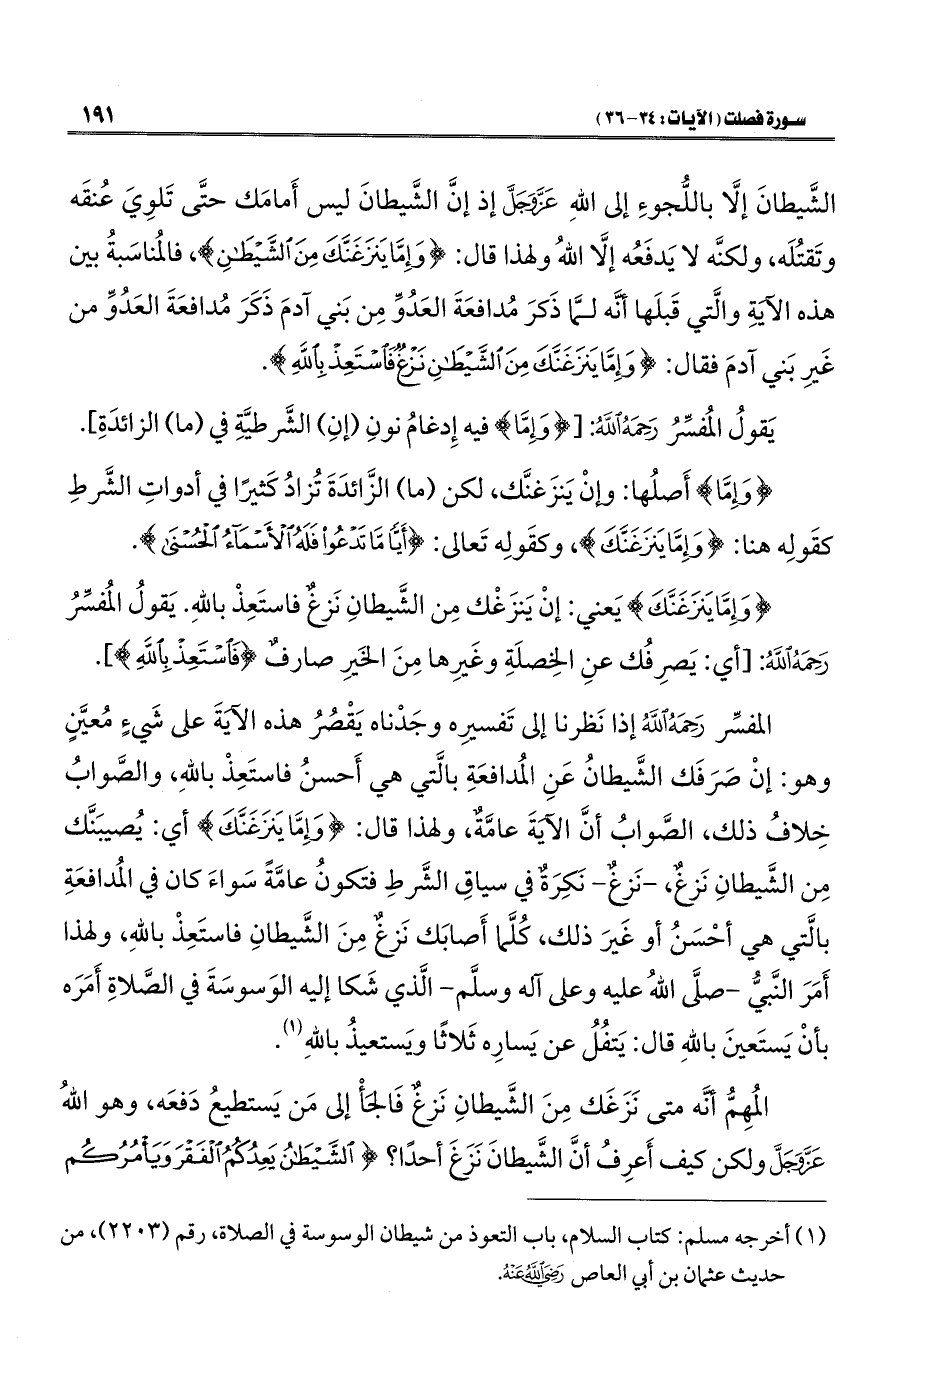 سورة فصلت (الآيات: ٣٤-٣٦) ١٩١
الشَّيطانَ إلَّا باللُّجوءِ إلى اللهِ عَزَّوَجَلَّ إذ إنَّ الشَّيطانَ ليس أمامَك حتَّى تَلوِيَ عُنقَه
وتَقتُلَه، ولكنَّه لا يَدفَعُه إلَّا اللهُ ولهذا قال: ﴿وَإِمَّا يَنزَغَنَّكَ مِنَ ٱلشَّيْطَٰنِ﴾، فالمُناسَبةُ بين
هذه الآيَةِ والَّتي قَبلَها أنَّه لـمَّا ذكَر مُدافعَةَ العَدُوِّ مِن بَني آدمَ ذَكَرَ مُدافعَةَ العَدُوِّ من
غَيرِ بَني آدمَ فقال: ﴿وَإِمَّا يَنزَغَنَّكَ مِنَ ٱلشَّيْطَٰنِ نَزْغٌ فَٱسْتَعِذْ بِٱللَّهِ﴾.
يَقولُ المُفسِّرُ رَحِمَهُ ٱللَّهُ: [﴿وَإِمَّا﴾ فيه إدغامُ نونِ (إنِ) الشَّرطيَّةِ في (ما) الزائدَةِ].
﴿وَإِمَّا﴾ أصلُها: وإنْ يَنزَغنَّك، لكن (ما) الزَّائدَةَ تُزادُ كثيرًا في أدواتِ الشَّرطِ
كقَولِه هنا: ﴿وَإِمَّا يَنزَغَنَّكَ﴾، وكقَولِه تَعالى: ﴿أَيًّا مَّا تَدْعُوا۟ فَلَهُ ٱلْأَسْمَآءُ ٱلْحُسْنَىٰ﴾.
﴿وَإِمَّا يَنزَغَنَّكَ﴾ يَعني: إنْ يَنزَغْك مِن الشَّيطانِ نَزغٌ فاستَعِذْ باللهِ. يَقولُ المُفسِّرُ
رَحِمَهُ ٱللَّهُ: [أي: يَصرِفُك عنِ الخِصلَةِ وغَيرِها مِنَ الخَيرِ صارفٌ ﴿فَٱسْتَعِذْ بِٱللَّهِ﴾].
المفسِّر رَحِمَهُ ٱللَّهُ إذا نَظَرنا إلى تَفسيرِه وجَدْناه يَقْصُرُ هذه الآيَةَ على شَيءٍ مُعيَّنٍ
وهو: إنْ صَرَفَك الشَّيطانُ عَنِ المُدافعَةِ بالَّتي هي أَحسنُ فاستَعِذْ باللهِ، والصَّوابُ
خِلافُ ذلك، الصَّوابُ أنَّ الآيَةَ عامَّةٌ، ولهذا قال: ﴿وَإِمَّا يَنزَغَنَّكَ﴾ أي: يُصيبَنَّك
مِن الشَّيطانِ نَزغٌ، -نَزغٌ- نَكِرَةٌ في سياقِ الشَّرطِ فتَكونُ عامَّةً سَواءَ كان في المُدافعَةِ
بالَّتي هي أحْسَنُ أو غَيرَ ذلك، كُلَّما أَصابَك نَزغٌ مِنَ الشَّيطانِ فاستَعِذْ باللهِ، ولهذا
أمَرَ النَّبيُّ -صلَّى اللهُ عليه وعلى آله وسلَّم- الَّذي شَكا إليه الوَسوسَةَ في الصَّلاةِ أَمَرَه
بأنْ يَستَعينَ باللهِ قال: يَتفُلُ عن يَسارِه ثَلاثًا ويَستعيذُ باللهِ(١).
المُهِمُّ أنَّه متى نَزَغَك مِنَ الشَّيطانِ نَزغٌ فَالجَأْ إلى مَن يَستطيعُ دَفعَه، وهو اللهُ
عَزَّوَجَلَّ ولكن كيف أَعرِفُ أنَّ الشَّيطانَ نَزَغَ أحدًا؟ ﴿ٱلشَّيْطَٰنُ يَعِدُكُمُ ٱلْفَقْرَ وَيَأْمُرُكُم
(١) أخرجه مسلم: كتاب السلام، باب التعوذ من شيطان الوسوسة في الصلاة، رقم (٢٢٠٣)، من
حديث عثمان بن أبي العاص رَضِيَ ٱللَّهُ عَنْهُ.